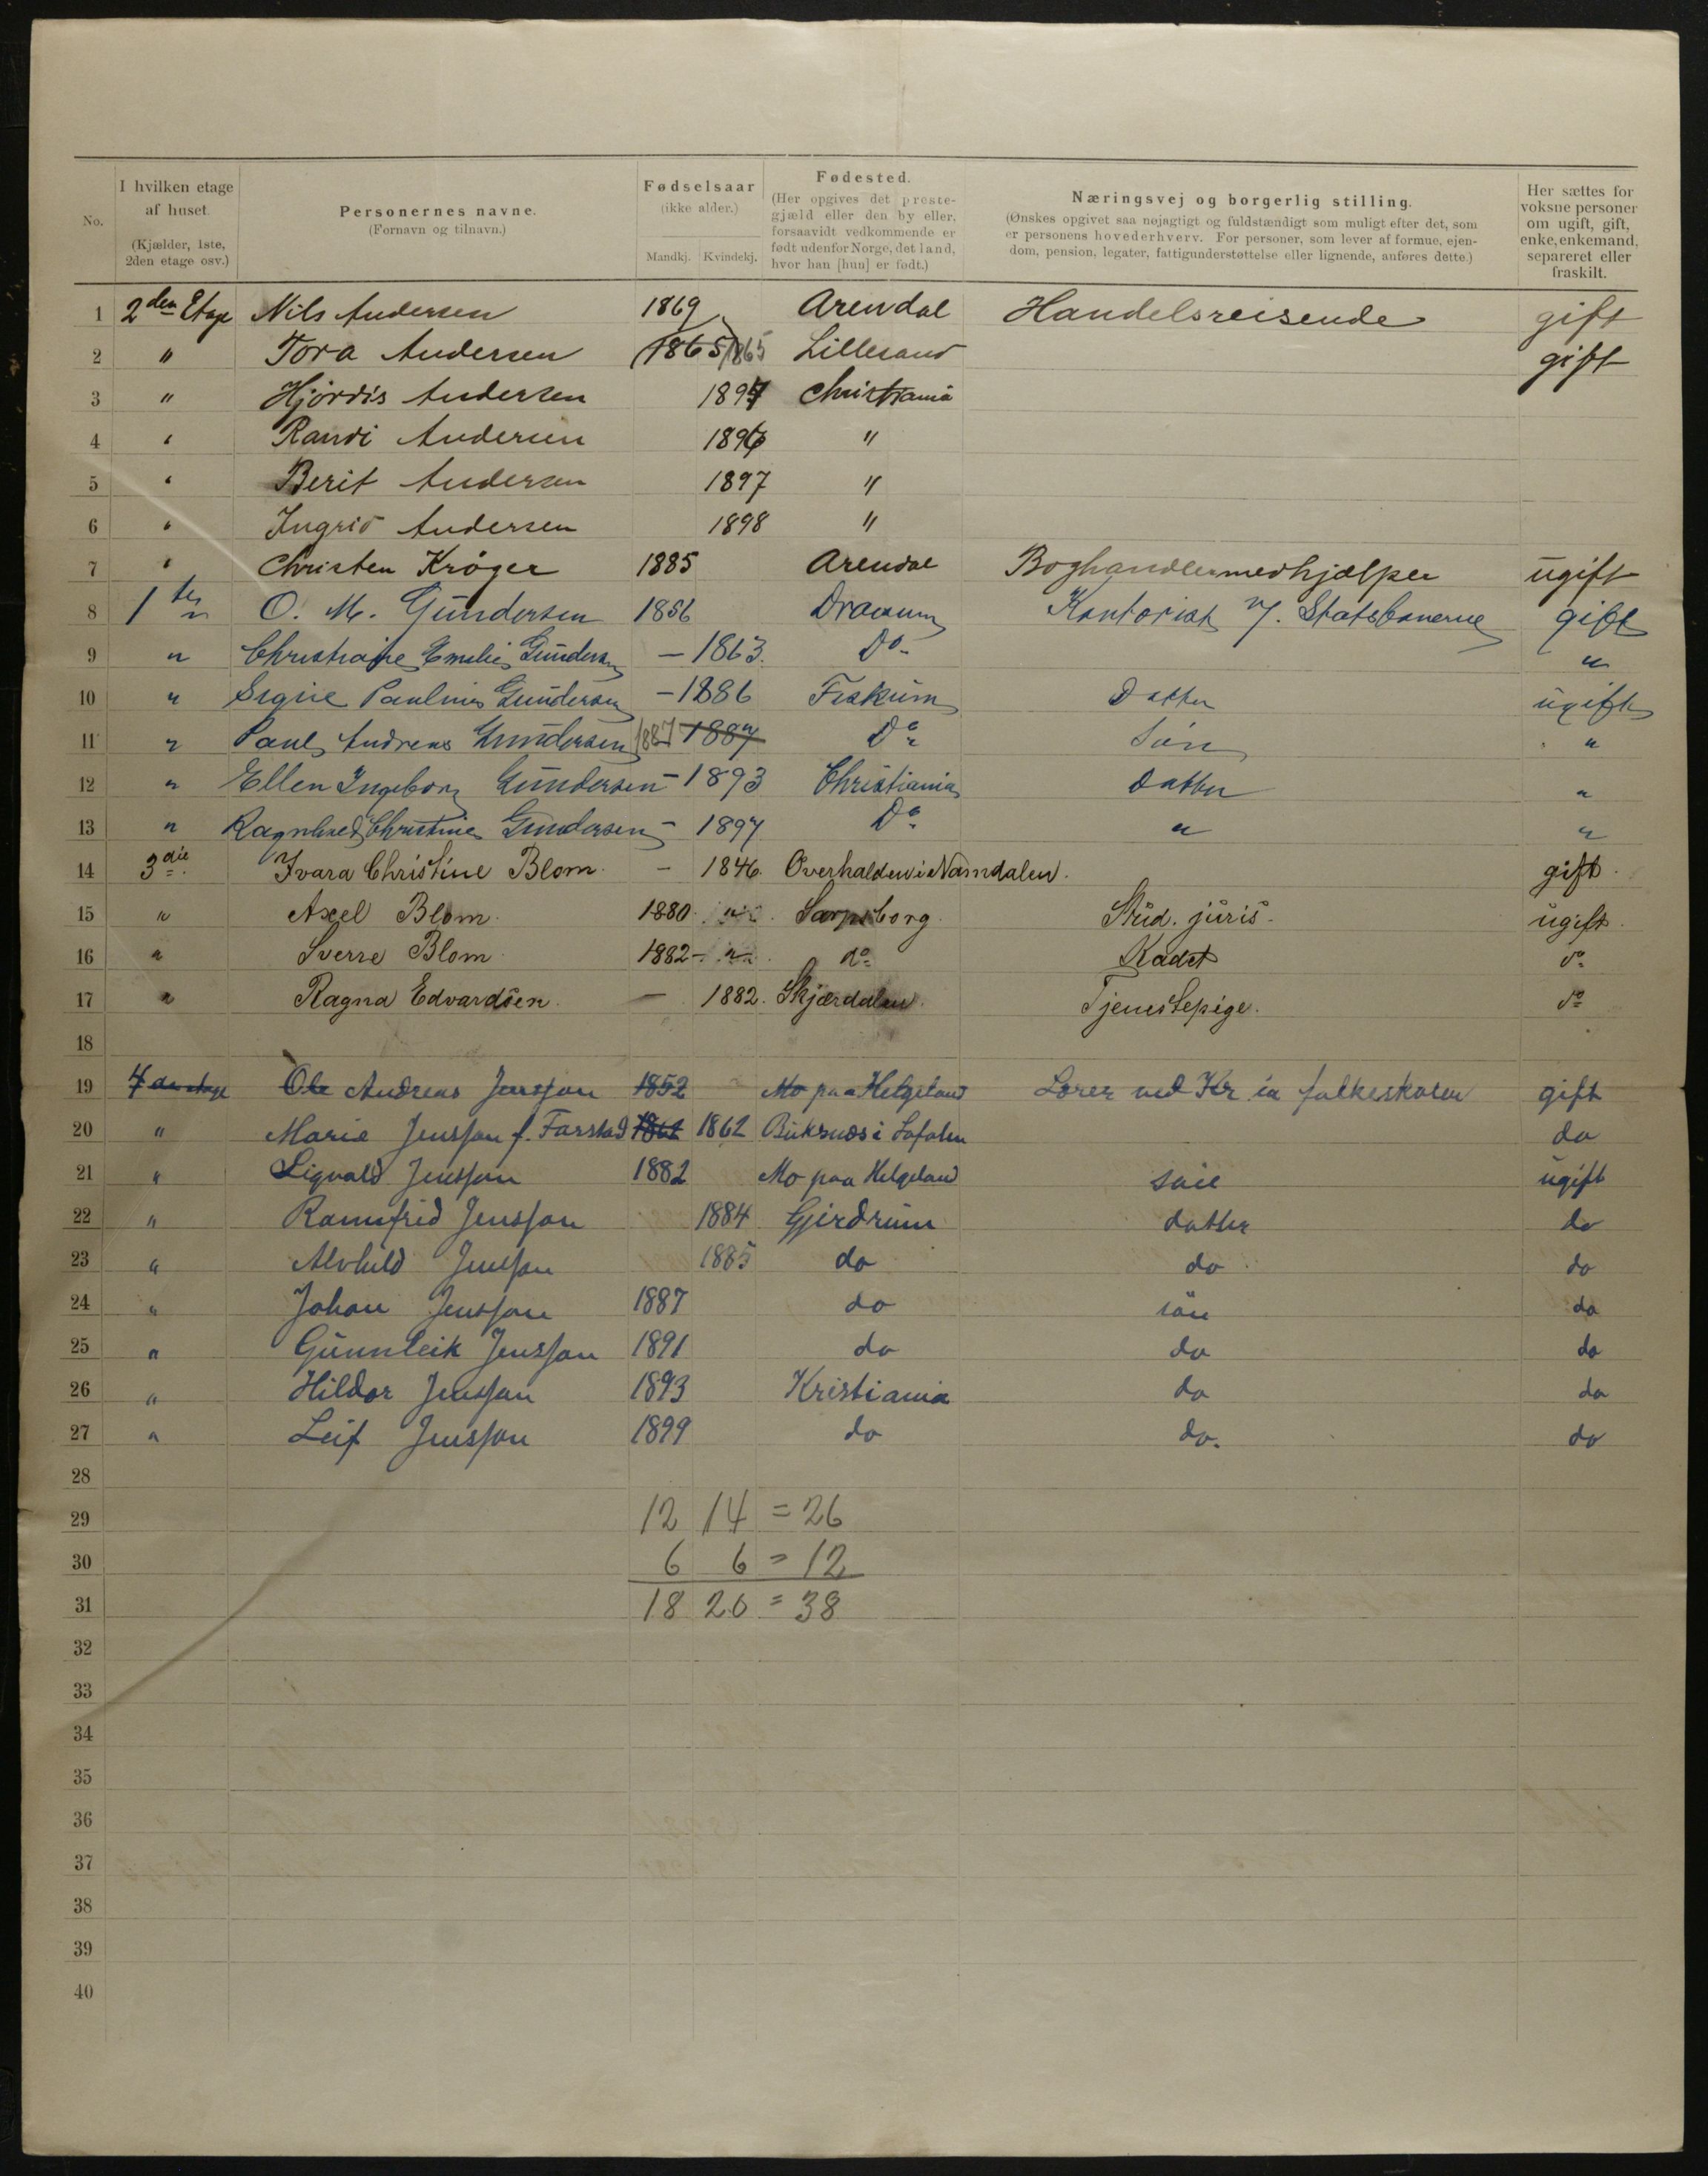 No.
I hvilken etage af huset. (Kjælder, 1ste, 2den etage osv.)
Personernes navne. (Fornavn og tilnavn.)
Fødselsaar (ikke alder.) Mandkj. Kvindekj.
Fødested. (Her opgives det prestegjæld eller den by eller, forsaavidt vedkommende er født udenfor Norge, det land, hvor han [hun] er født.)
Næringsvej og borgerlig stilling. (Ønskes opgivet saa nøjagtigt og fuldstændigt som muligt efter det, som er personens hovederhverv. For personer, som lever af formue, ejendom, pension, legater, fattigunderstøttelse eller lignende, anføres dette.)
Her sættes for voksne personer om ugift, gift, enke, enkemand, separeret eller fraskilt.
1 2den Etage Nils Andersen 1869 Arendal Handelsreisende gift
2 " Tora Andersen 1865 1865 Lillesand gift
3 " Hjördis Andersen 1894 Christiania
4 " Randi Andersen 1896 "
5 " Berit Andersen 1897 "
6 " Ingrid Andersen 1898 "
7 " Christen Kröger 1885 Arendal Boghandlermedhjælper ugift
8 1ste O. M. Gundersen 1856 Drammen Kontorist v/. Statsbanerne gift
9 " Christiane Emilie Gundersen — 1863. Do "
10 " Signe Pauline Gundersen — 1886 Fiskum Datter ugift
11 " Paul Andreas Gundersen 1887 1887 Do Søn "
12 " Ellen Ingeborg Gundersen — 1893 Christiania Datter "
13 " Ragnhild Christine Gundersen — 1897 Do " "
14 3die Ivara Christine Blom. — 1846. Overhalden i Namdalen. gift.
15 " Axel Blom. 1880. " Sarpsborg. Stud. juris. ugift.
16 " Sverre Blom. 1882 — " do Kadet do
17 " Ragna Edvardsen. — 1882. Skjærdalen. Tjenestepige. do
18
19 4de etage Ole Andreas Jensson 1852 Mo paa Helgeland Lærer ved Kr.ia folkeskoler gift
20 " Marie Jensson f. Farstad 1862 1862 Buksnæs i Lofoten do
21 " Sigvald Jensson 1882 Mo paa Helgeland søn ugift
22 " Ramnfrid Jensson 1884 Gjerdrum datter do
23 " Alvhild Jensson 1885 do do do
24 " Johan Jensson 1887 do søn do
25 " Gunnleik Jensson 1891 do do do
26 " Hildor Jensson 1893 Kristiania do do
27 " Leif Jensson 1899 do do. do
28
29 12 14 = 26
30 6 6 = 12
31 18 20 = 38
32
33
34
35
36
37
38
39
40